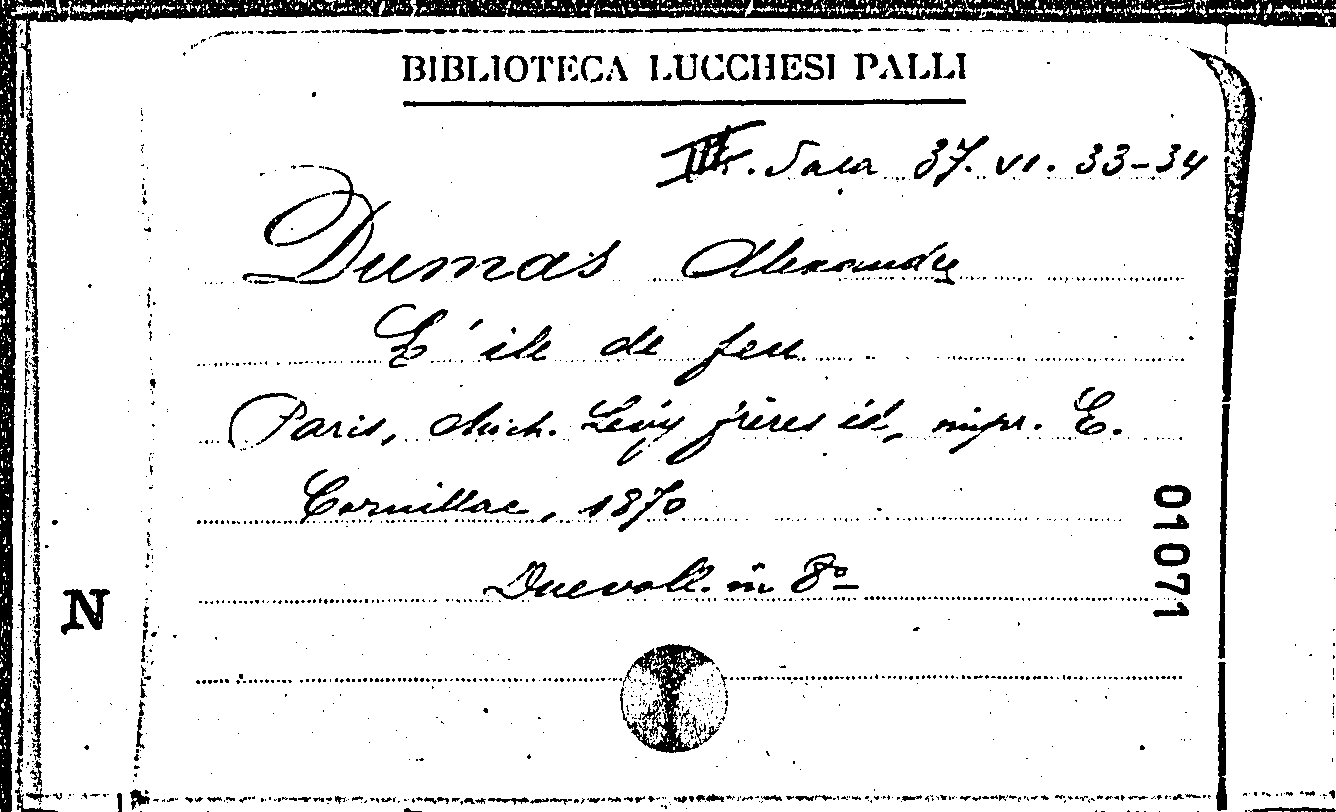 BIBLIOTECA LUCCHESI PALLI
III. Sala 37. VI. 33-34
Dumas Alexandre
L'ile de feu
Paris, Mich. Lévy frères éd, impr. E.
Cornillac, 1870
Due voll. in 8º
01071
N